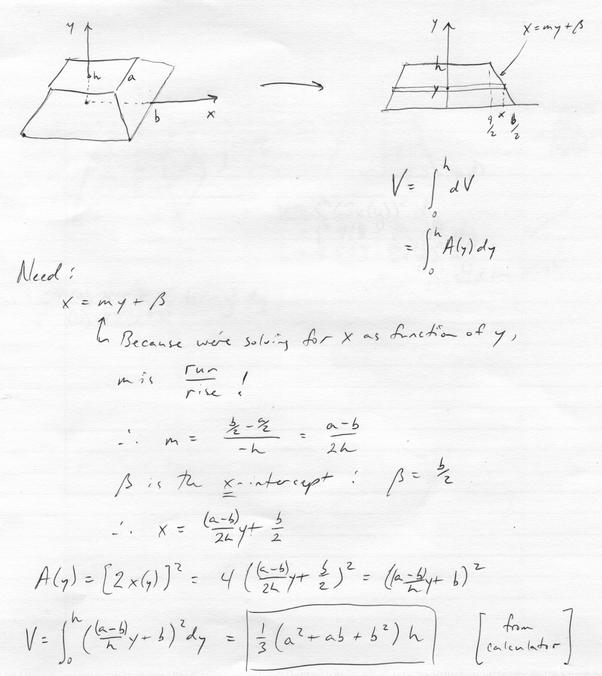 y
h
a
b
x
y
x = my + β
h
y
a/2 x b/2
V = ∫₀ʰ dV
= ∫₀ʰ A(y) dy
Need:
x = my + β
Because we're solving for x as function of y,
m is run/rise !
∴ m = (b/2 - a/2)/(-h) = (a-b)/(2h)
β is the x-intercept: β = b/2
∴ x = (a-b)/(2h) y + b/2
A(y) = [2x(y)]² = 4((a-b)/(2h) y + b/2)² = ((a-b)/h y + b)²
V = ∫₀ʰ ((a-b)/h y + b)² dy = 1/3 (a² + ab + b²) h [from calculator]